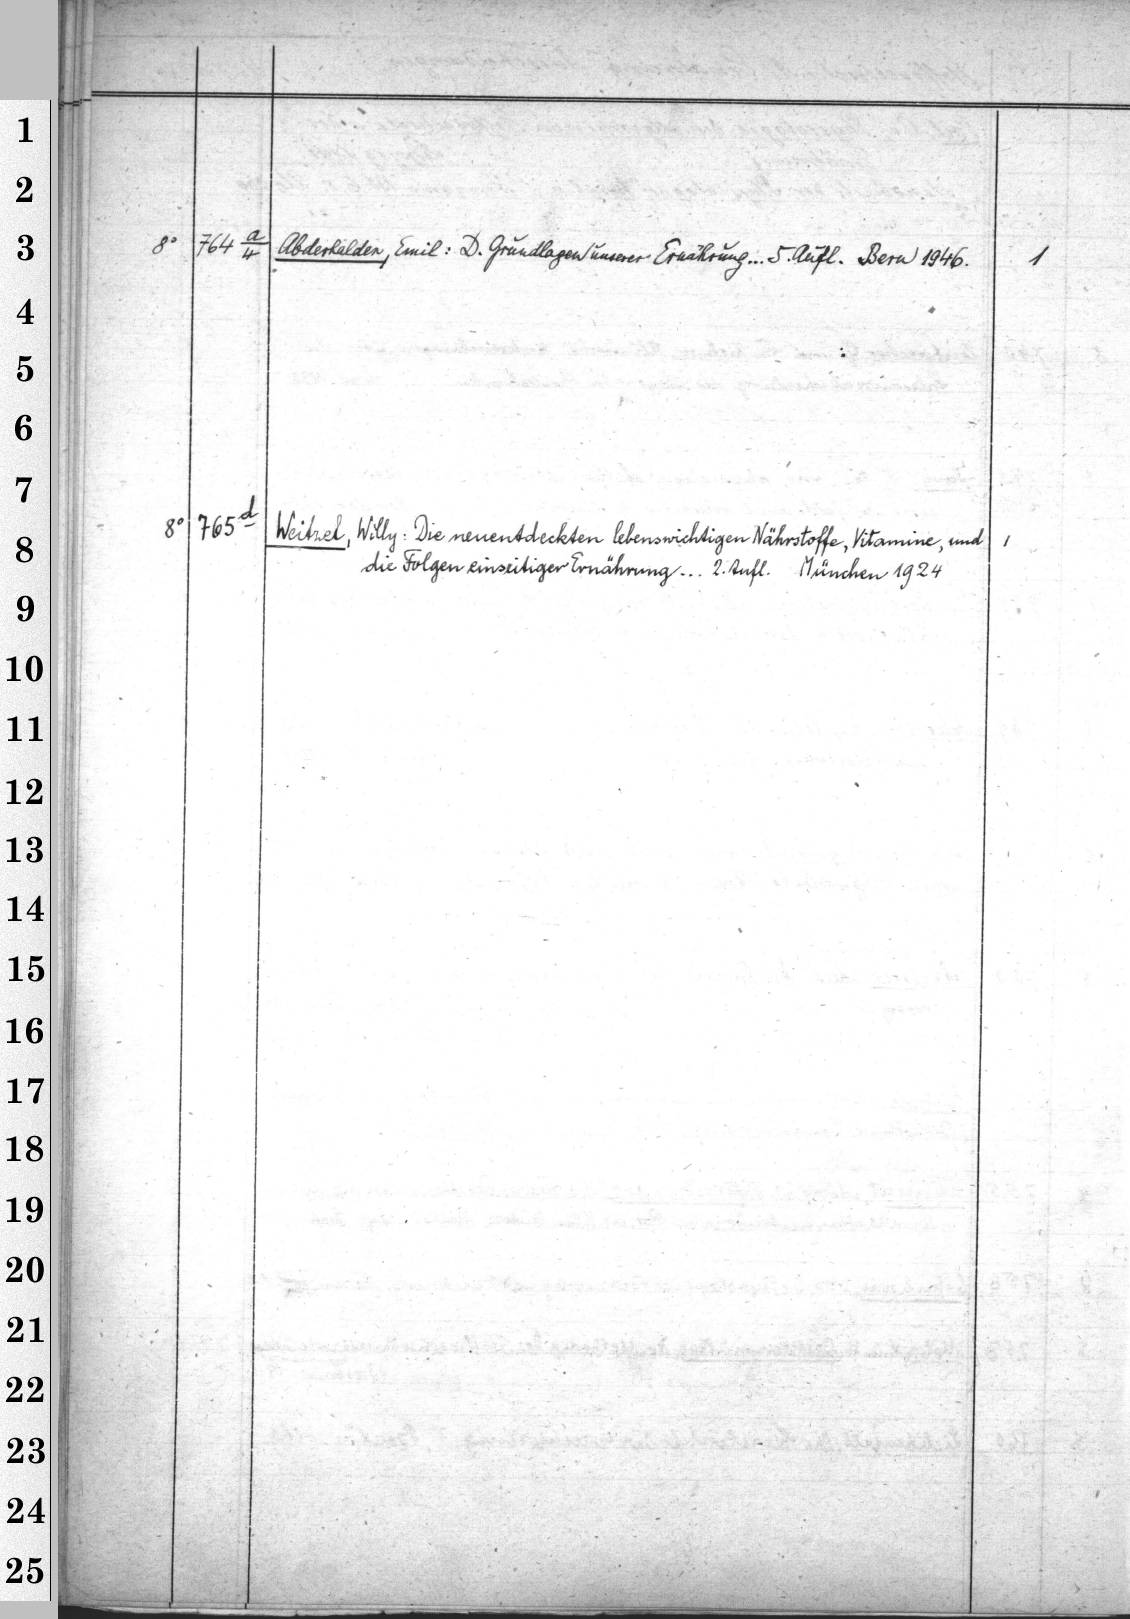 1
2
3
8° 764 a/4 Abderhalden, Emil: D. Grundlagen unserer Ernährung... 5. Aufl. Bern 1946. 1
4
5
6
7
8° 765 d Weitzel, Willy: Die neuentdeckten lebenswichtigen Nährstoffe, Vitamine, und 1
8
die Folgen einseitiger Ernährung... 2. Aufl. München 1924
9
10
11
12
13
14
15
16
17
18
19
20
21
22
23
24
25